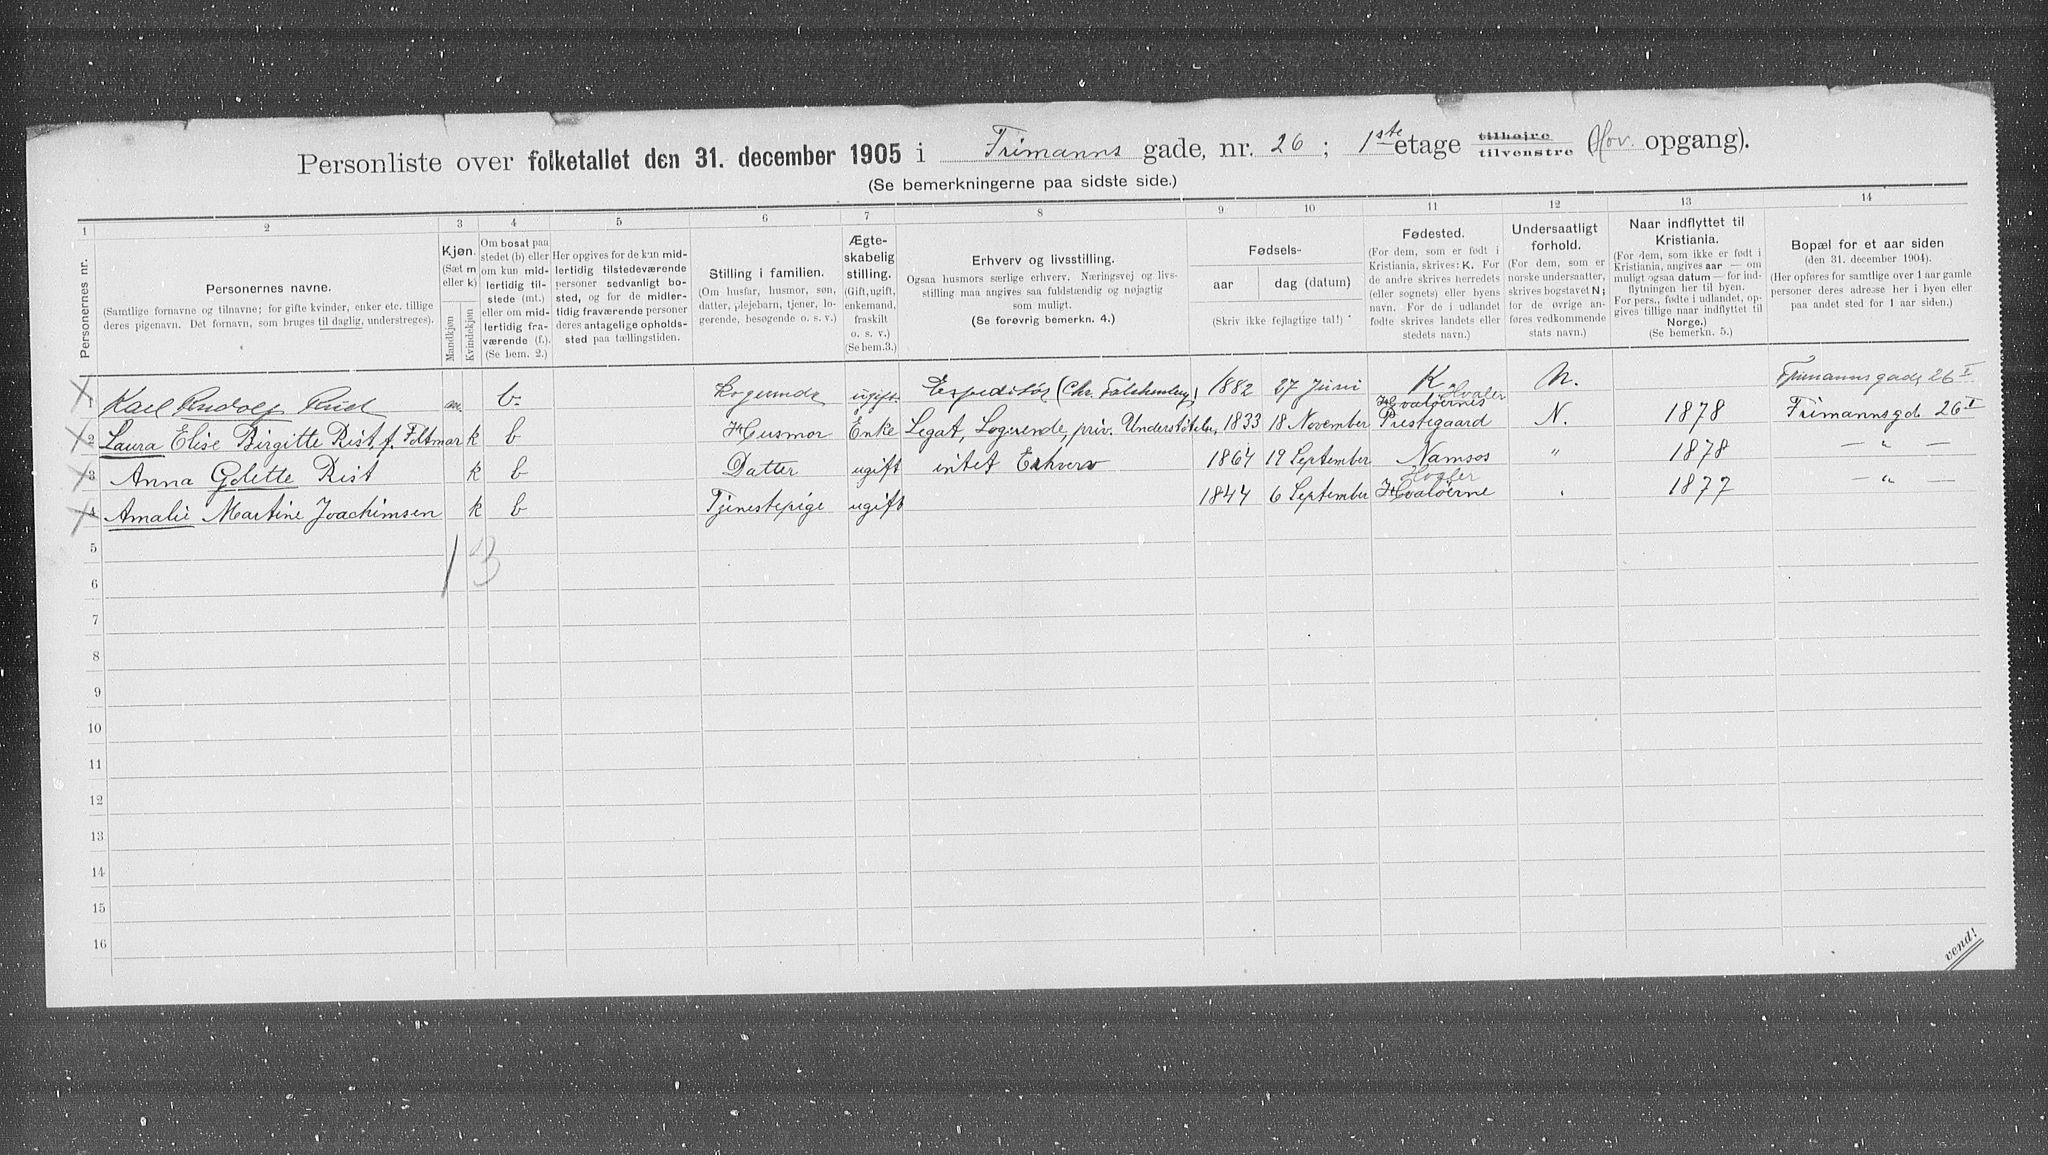 Personliste over folketallet den 31. december 1905 i Frimanns gade, nr. 26; 1ste etage tilhøire tilvenstre (Hov. opgang).
(Se bemerkningerne paa sidste side.)
1 2 3 4 5 6 7 8 9 10 11 12 13 14
Personernes nr.
Personernes navne.
(Samtlige fornavne og tilnavne; for gifte kvinder, enker etc. tillige
deres pigenavn. Det fornavn, som bruges til daglig, understreges).
Kjøn.
(Sæt m
eller k)
Mandkjøn
Kvindekjøn
Om bosat paa
stedet (b) eller
om kun mid-
lertidig til-
stede (mt.)
eller om mid-
lertidig fra-
værende (f.).
(Se bem. 2.)
Her opgives for de kun mid-
lertidig tilstedeværende
personer sedvanligt bo-
sted, og for de midler-
tidig fraværende personer
deres antagelige opholds-
sted paa tællingstiden.
Stilling i familien.
(Om husfar, husmor, søn,
datter, plejebarn, tjener, lo-
gerende, besøgende o. s. v.)
Ægte-
skabelig
stilling.
(Gift, ugift,
enkemand,
fraskilt
o. s. v.)
(Se bem.3.)
Erhverv og livsstilling.
Ogsaa husmors særlige erhverv. Næringsvej og livs-
stilling maa angives saa fuldstændig og nøjagtig
som muligt.
(Se forøvrig bemerkn. 4.)
Fødsels-
aar
dag (datum)
(Skriv ikke fejlagtige tal!)
Fødested.
(For dem, som er født i
Kristiania, skrives: K. For
de andre skrives herredets
(eller sognets) eller byens
navn. For de i udlandet
fødte skrives landets eller
stedets navn.)
Undersaatligt
forhold.
(For dem, som er
norske undersaatter,
skrives bogstavet N;
for de øvrige an-
føres vedkommende
stats navn.)
Naar indflyttet til
Kristiania.
(For dem, som ikke er født i
Kristiania, angives aar — om
muligt ogsaa datum — for ind-
flytningen her til byen.
For pers., fødte i udlandet, op-
gives tillige naar indflyttet til
Norge.)
(Se bemerkn. 5.)
Bopæl for et aar siden
(den 31. december 1904).
(Her opføres for samtlige over 1 aar gamle
personer deres adresse her i byen eller
paa andet sted for 1 aar siden.)
1 Karl Rudolf Rud m. b. Logerende ugift Expeditør (Chr. 1882 27 Juni K N. Frimannsgade 26 I
Hvaler
2 Laura Elise Birgitte Rist f. Foltmar k b Husmor Enke Legat, Logerende, priv. Understøttelse, 1833 18 November Hvaløernes Prestegaard N. 1878 Frimannsgd. 26 I
3 Anna Golette Rist k b Datter ugift intet Erhverv 1864 19 September Namsos " 1878 — " —
Hvaler
4 Amalie Martine Joachimsen k b Tjenestepige ugift 1844 6 September Hvaløerne " 1877 — " —
5
1 3
6
7
8
9
10
11
12
13
14
15
16
vend!